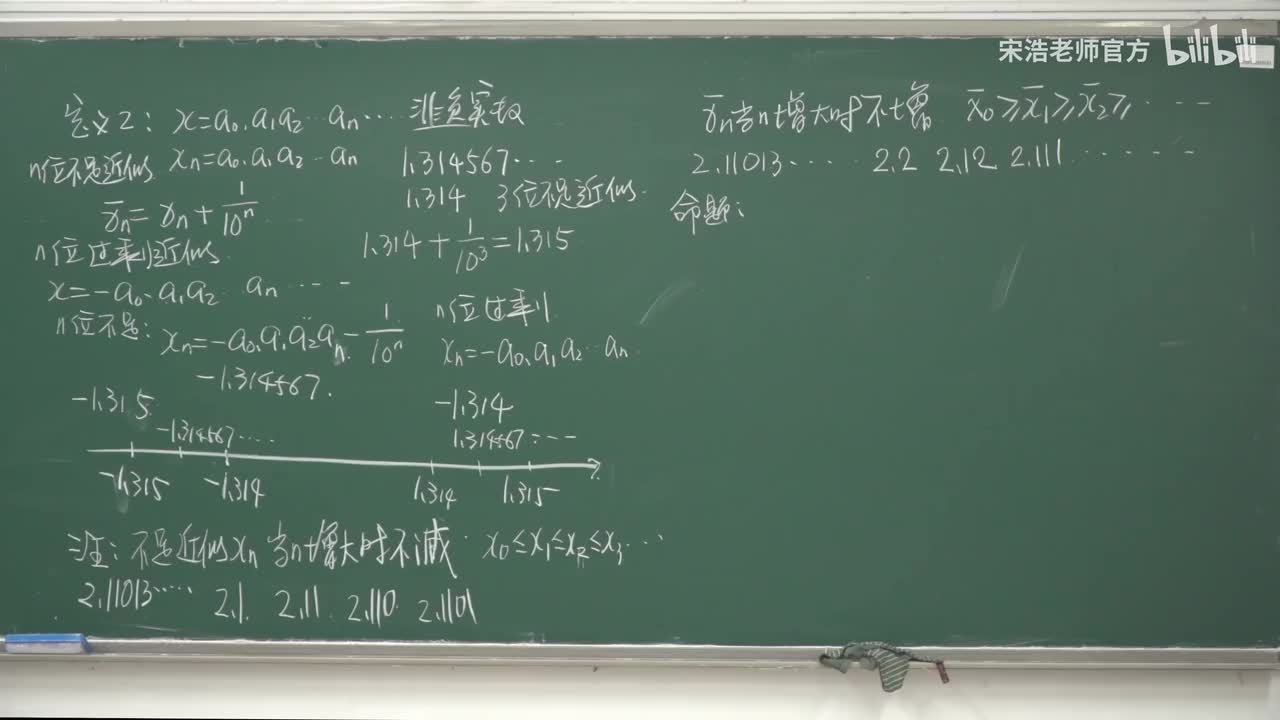 宋浩老师官方 bilibili
定义2: x=a₀.a₁a₂…aₙ… 非负实数
n位不足近似 xₙ=a₀.a₁a₂…aₙ 1.314567…
1.314 3位不足近似.
x̄ₙ=xₙ+1/10ⁿ
1.314+1/10³=1.315
n位过剩近似
x=-a₀.a₁a₂…aₙ…
n位不足: xₙ=-a₀.a₁a₂…aₙ-1/10ⁿ
n位过剩
xₙ=-a₀.a₁a₂…aₙ
-1.314567.
-1.315 -1.314
-1.314567… 1.314567…
-1.315 -1.314 1.314 1.315
注: 不足近似xₙ当n增大时不减. x₀≤x₁≤x₂≤x₃…
2.11013…… 2.1 2.11 2.110 2.1101
x̄ₙ当n增大时不增 x̄₀≥x̄₁≥x̄₂≥…
2.11013…… 2.2 2.12 2.111……
命题: